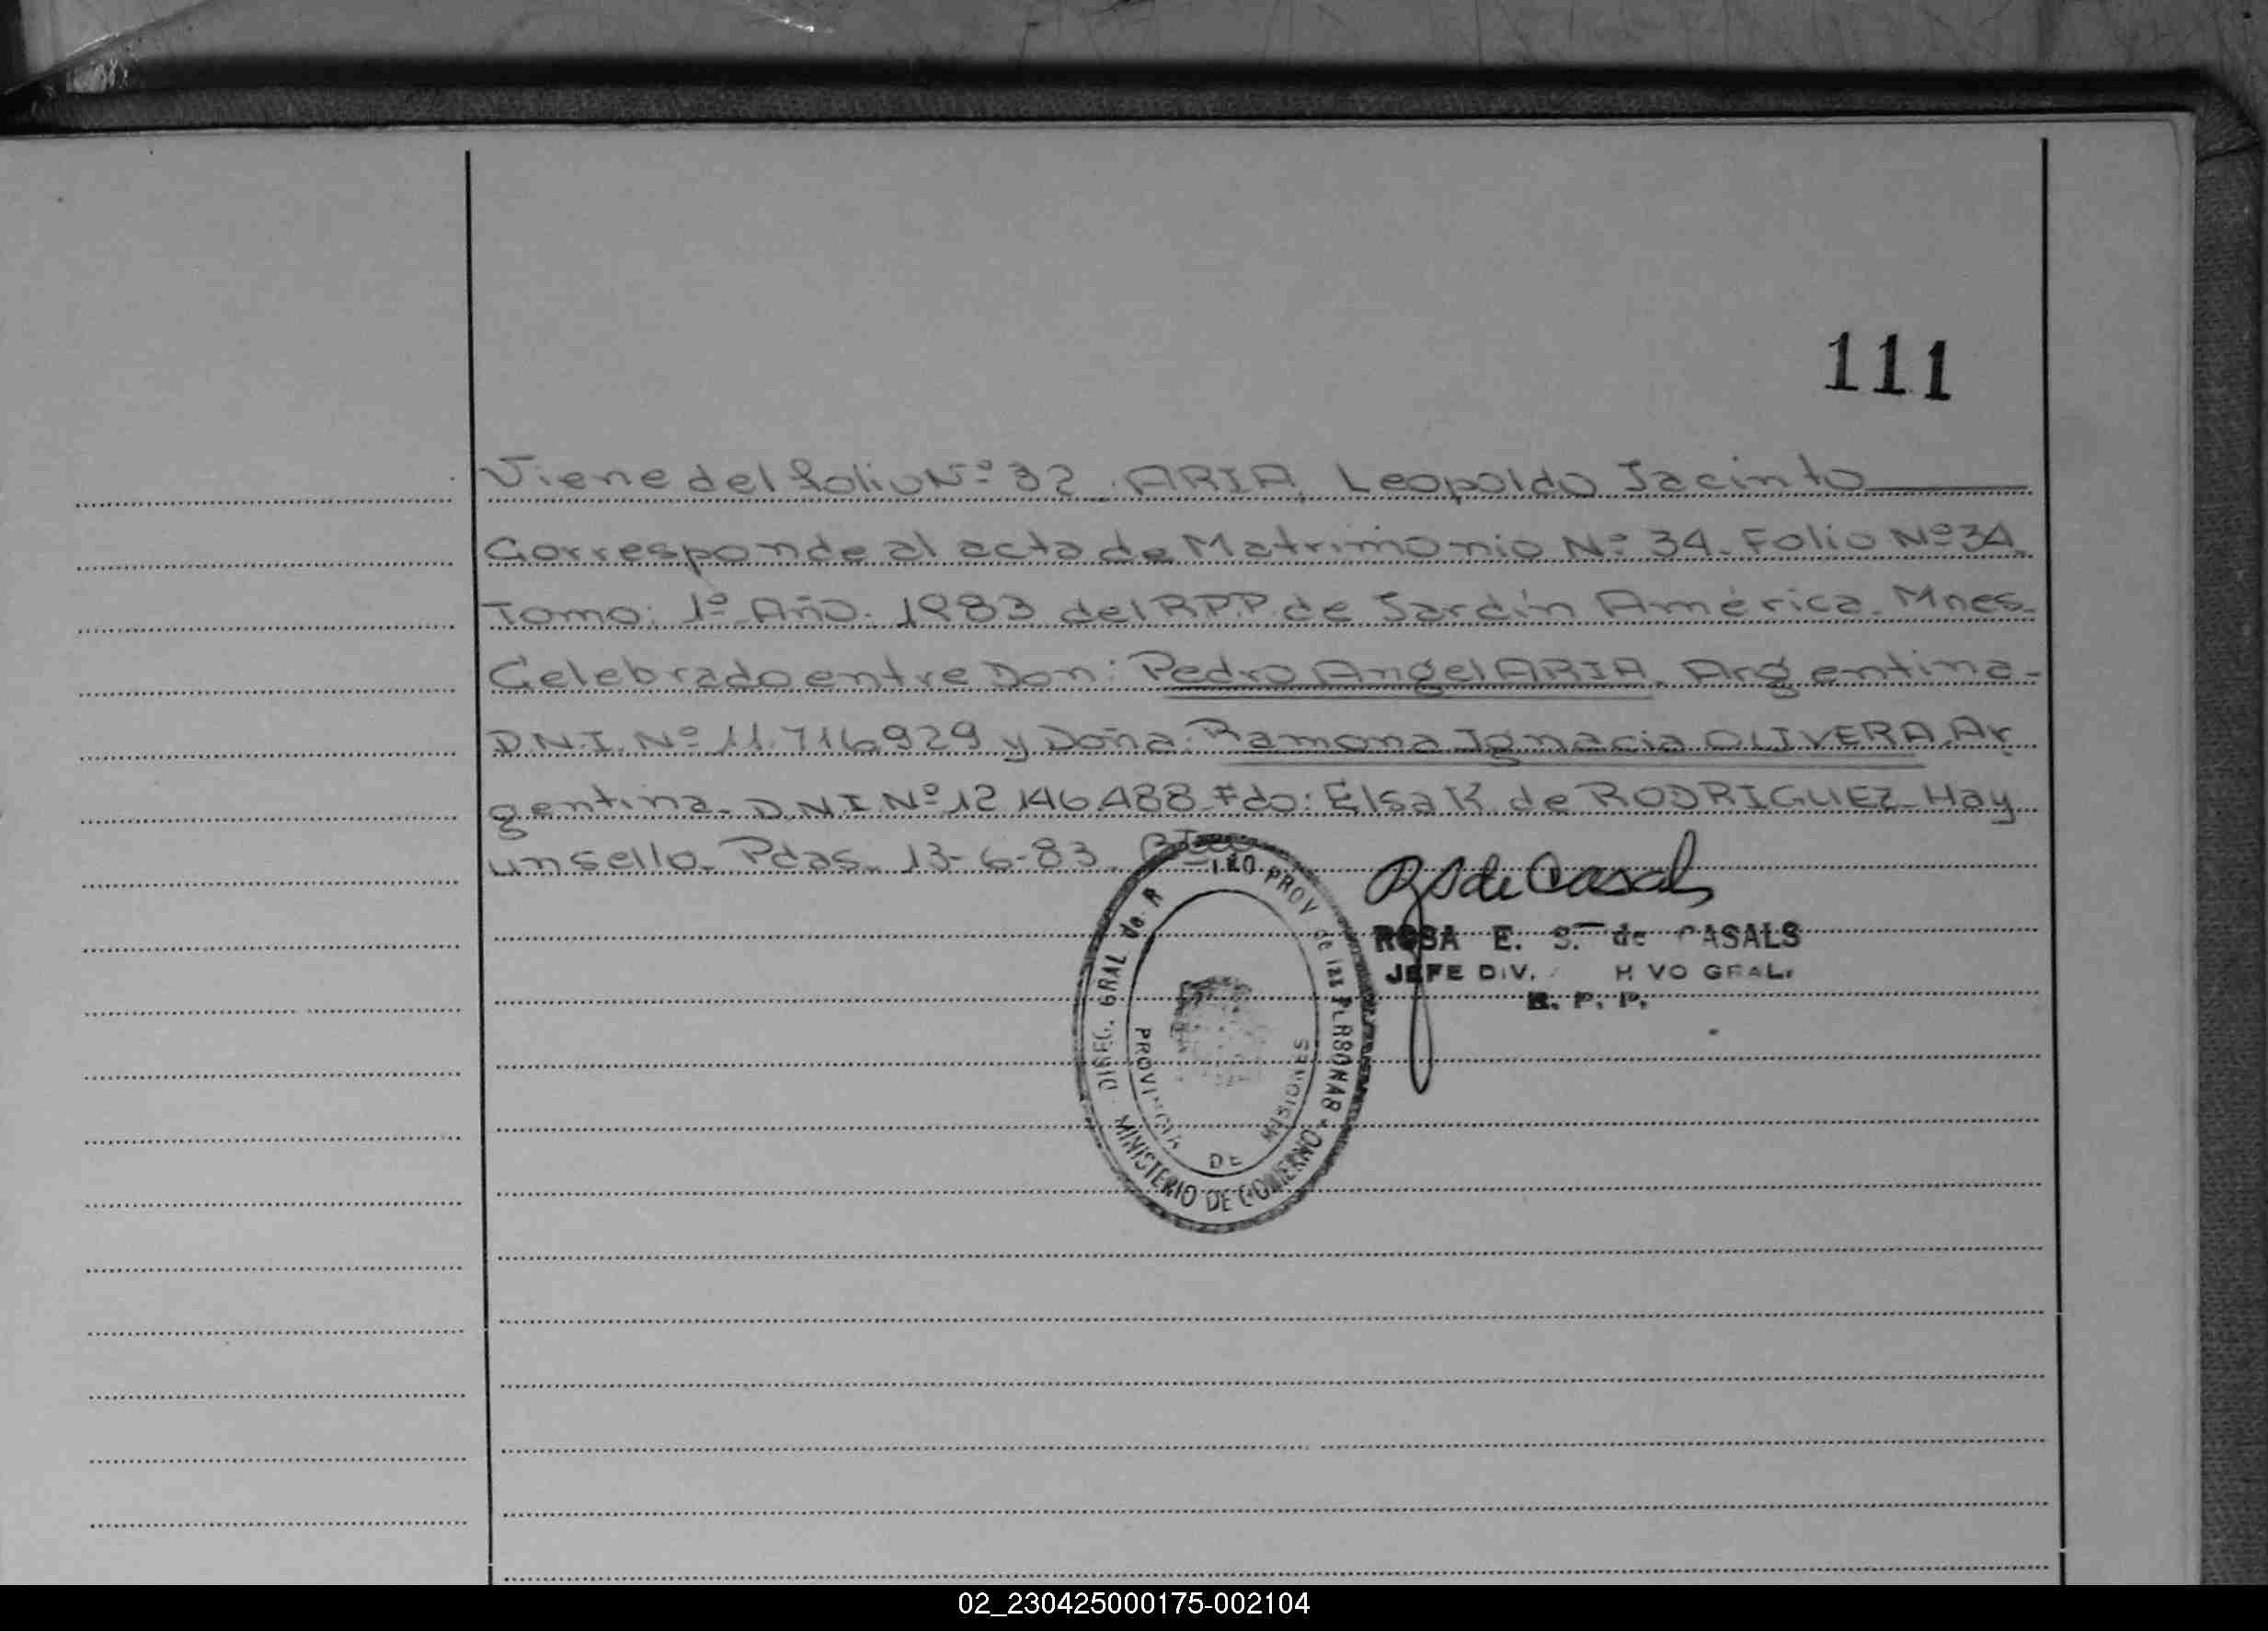 111
Viene del folio Nº 32. ARIA, Leopoldo Jacinto
Corresponde al acta de Matrimonio Nº 34. Folio Nº 34.
Tomo: 1º Año: 1983 del R.P.P. de Jardín América. Mnes.
Celebrado entre Don: Pedro Angel ARIA. Argentina-
D.N.I. Nº 11.716929 y Doña: Ramona Ignacia OLIVERA. Ar
gentina. D.N.I. Nº 12.146.488. Fdo: Elsa K. de RODRIGUEZ. Hay
un sello. Pdas. 13-6-83.
RS de Casals
ROSA E. S. de CASALS
JEFE DIV. H VO GRAL.
R. P. P.
DIREC. GRAL de PROV de las PERSONAS
MINISTERIO DE GOBIERNO
PROVINCIA DE MISIONES
02_230425000175-002104